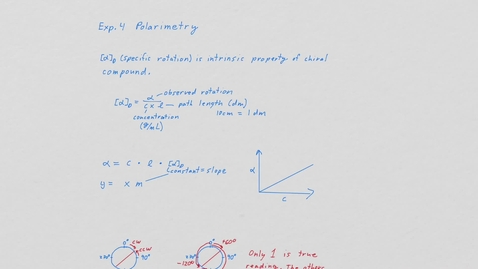 Exp. 4 Polarimetry
[α]D (specific rotation) is intrinsic property of chiral
compound.
α → observed rotation
[α]D = α / c x l — path length (dm)
concentration 10cm = 1 dm
(g/mL)
α = c · l · [α]D
constant = slope
y = x m
α
c
0° CW
CCW
90°
0° +60°
-120° 90°
Only 1 is true
reading. The others